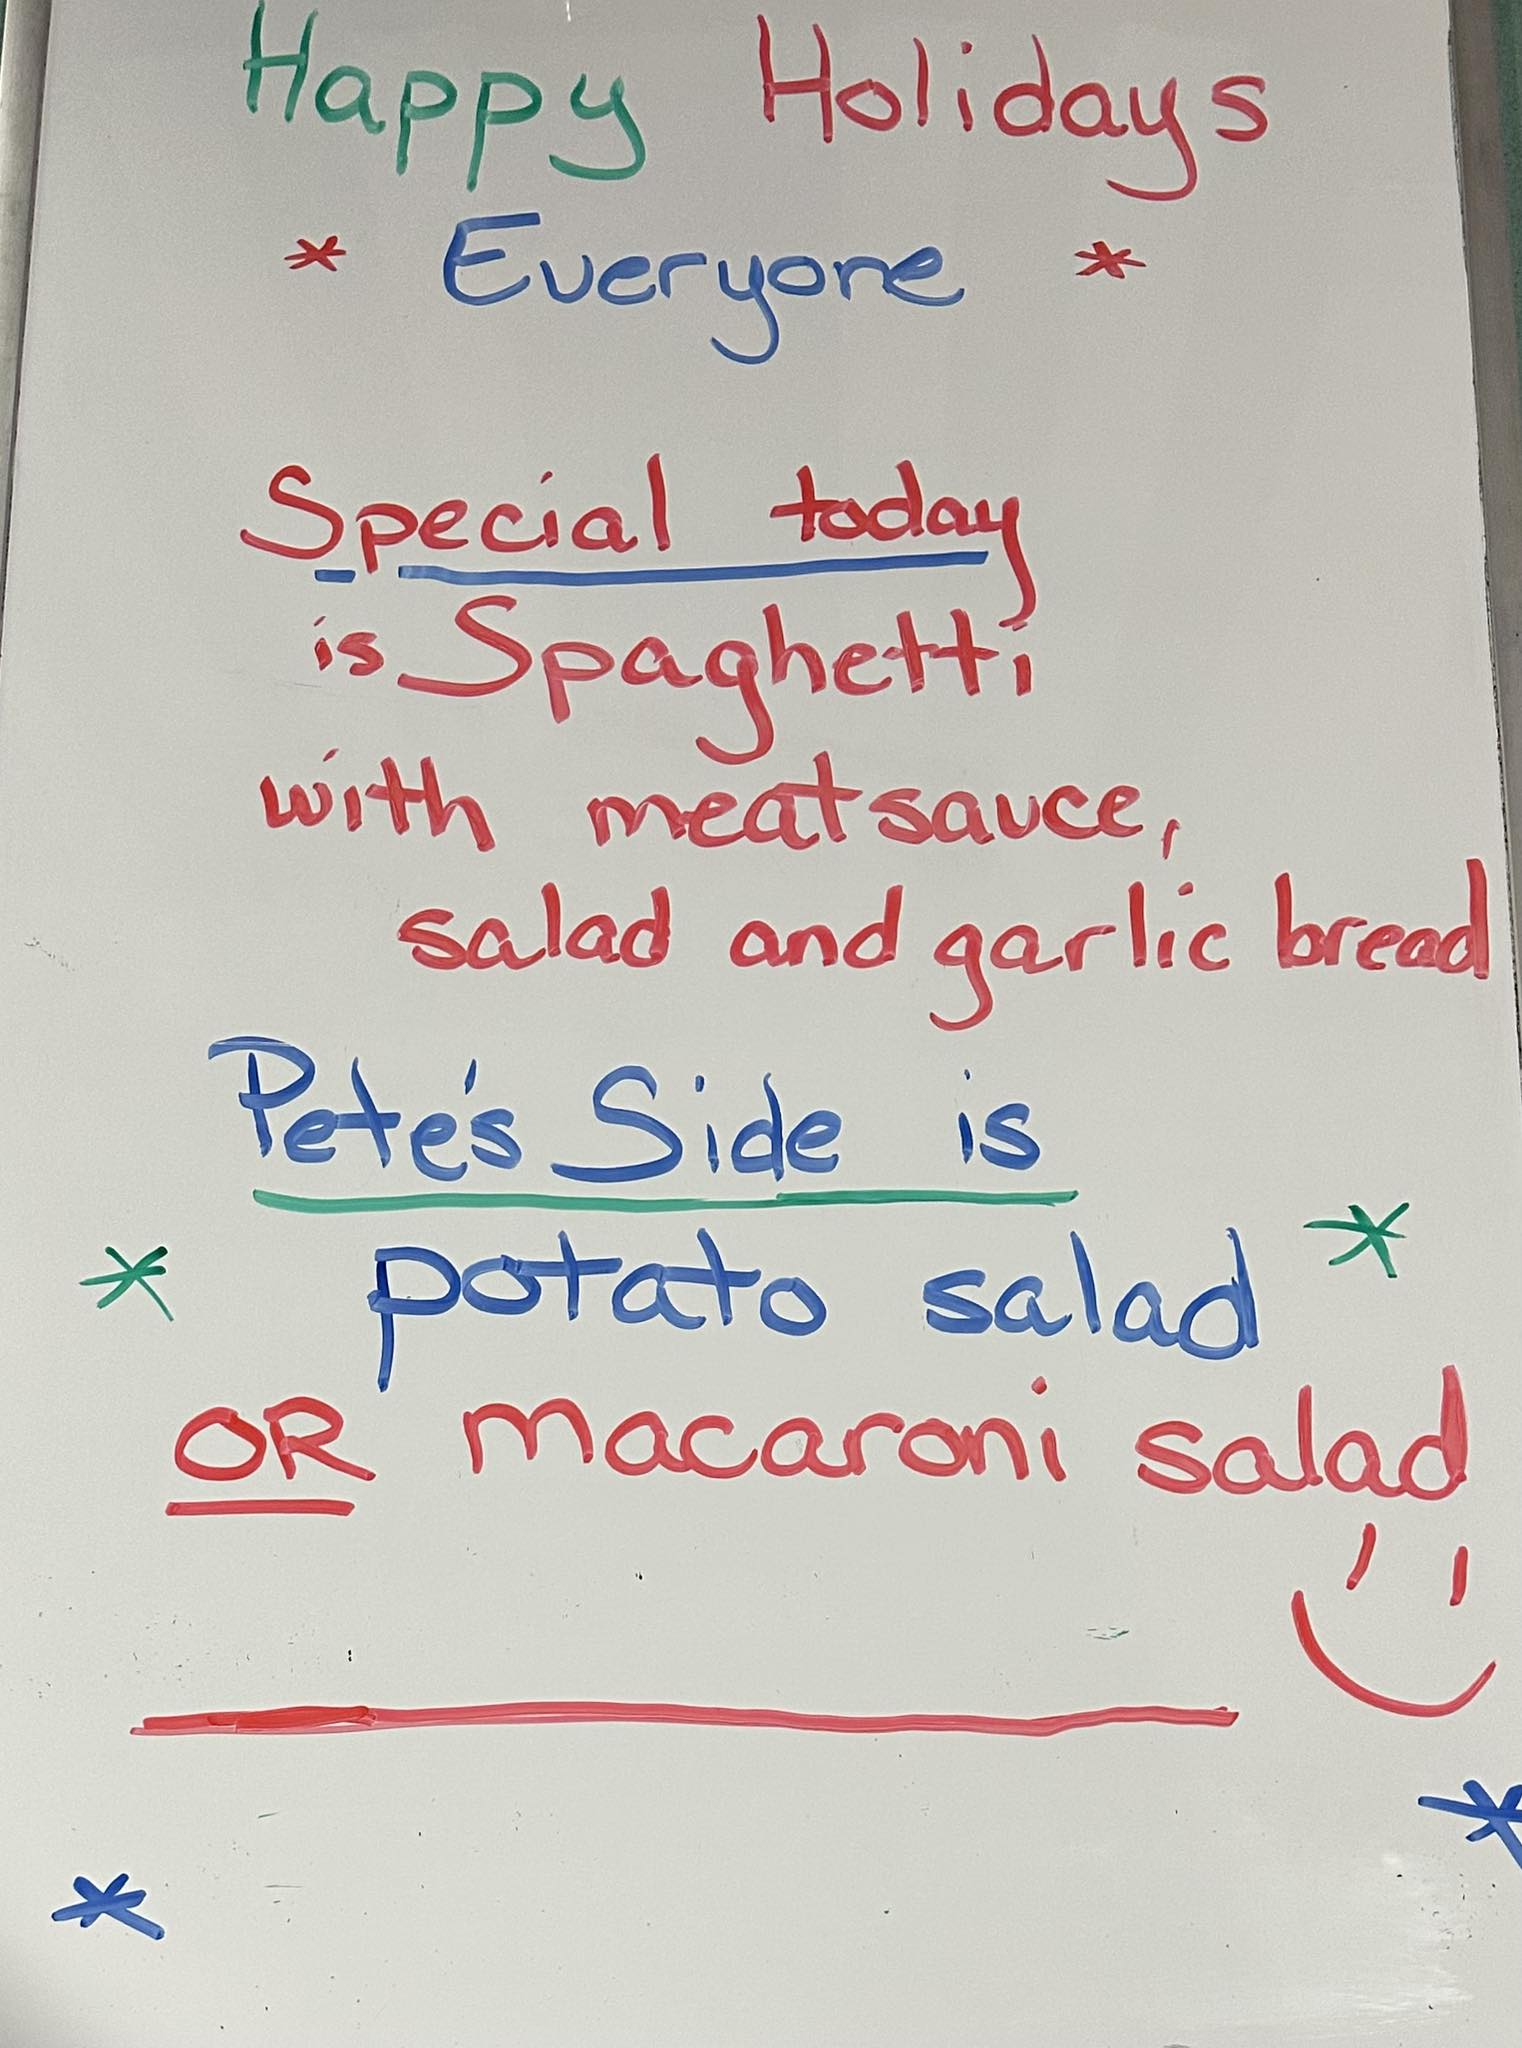 Happy Holidays
* Everyone *
Special today
is Spaghetti
with meatsauce,
salad and garlic bread
Pete's Side is
* potato salad *
OR macaroni salad